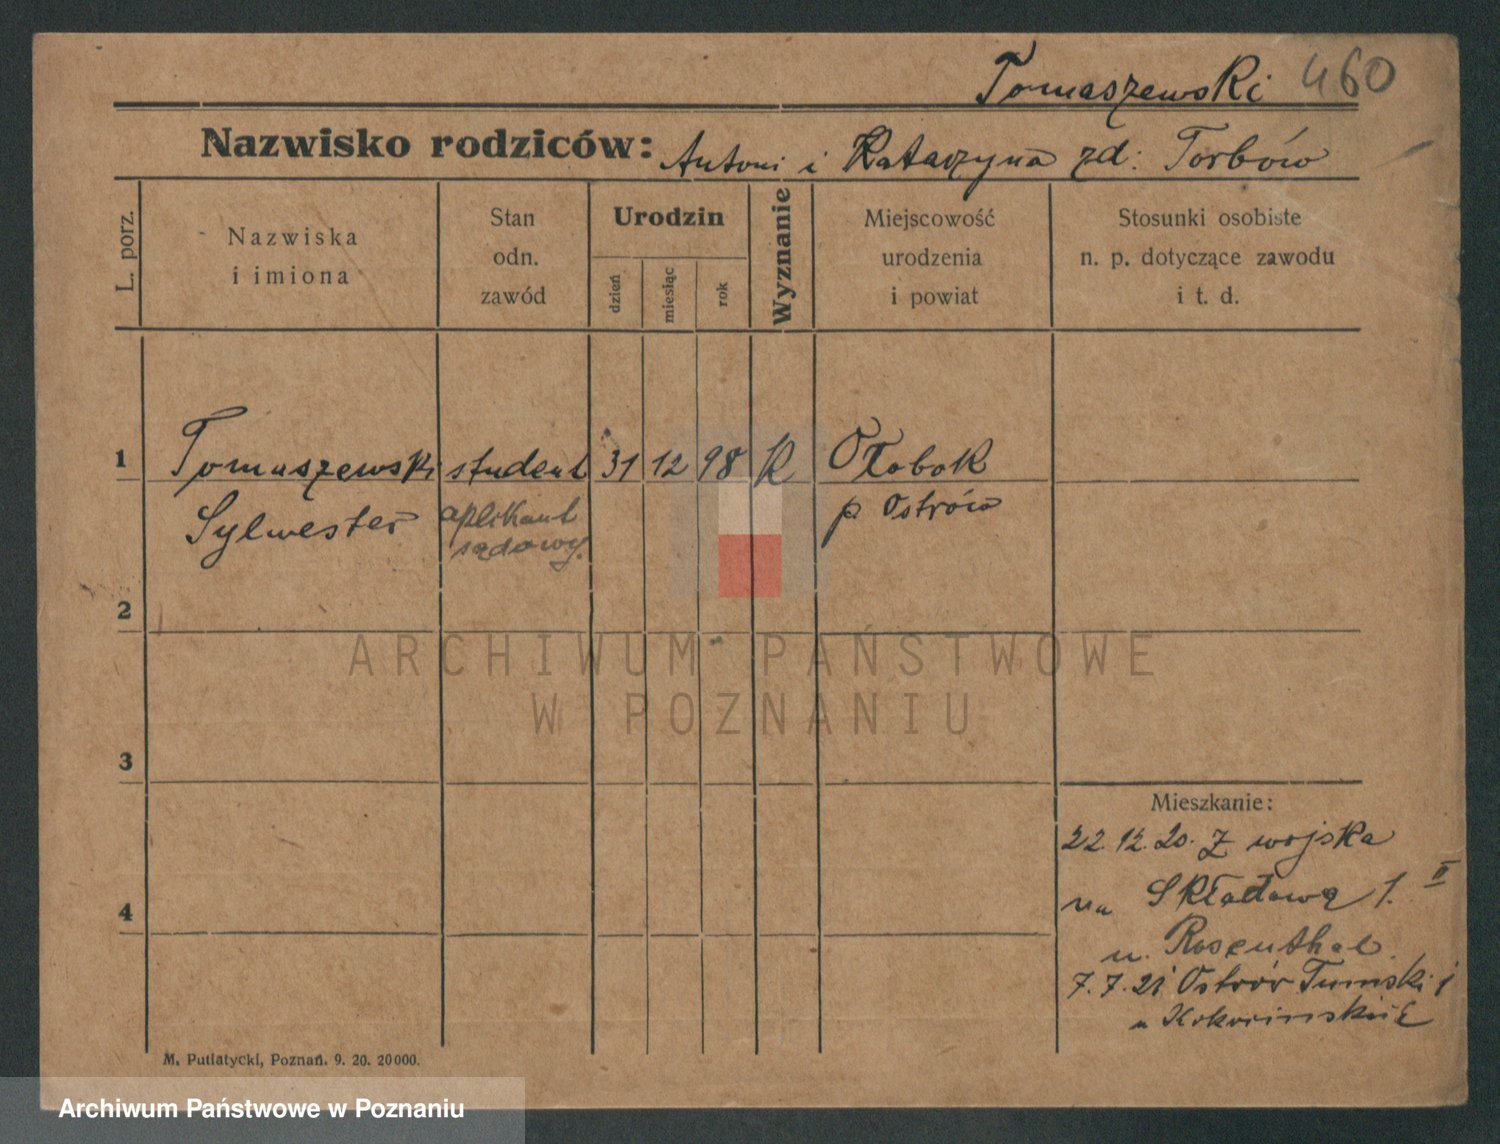 Tomaszewski 460
Nazwisko rodziców: Antoni i Katarzyna zd: Torbów
L. porz.
Nazwiska
i imiona
Stan
odn.
zawód
Urodzin
dzień
miesiąc
rok
Wyznanie
Miejscowość
urodzenia
i powiat
Stosunki osobiste
n. p. dotyczące zawodu
i t. d.
1 Tomaszewski student 31 12 98 K Ołobok
Sylwester aplikant p Ostrów
sądowy.
2
3
4
Mieszkanie:
22.12.20. Z wojska
na Składową 1. II
u. Rosenthal.
7.7.21 Ostrów Tumski 1
u
M. Putiatycki, Poznań. 9. 20. 20000.
ARCHIWUM PAŃSTWOWE
W POZNANIU
Archiwum Państwowe w Poznaniu